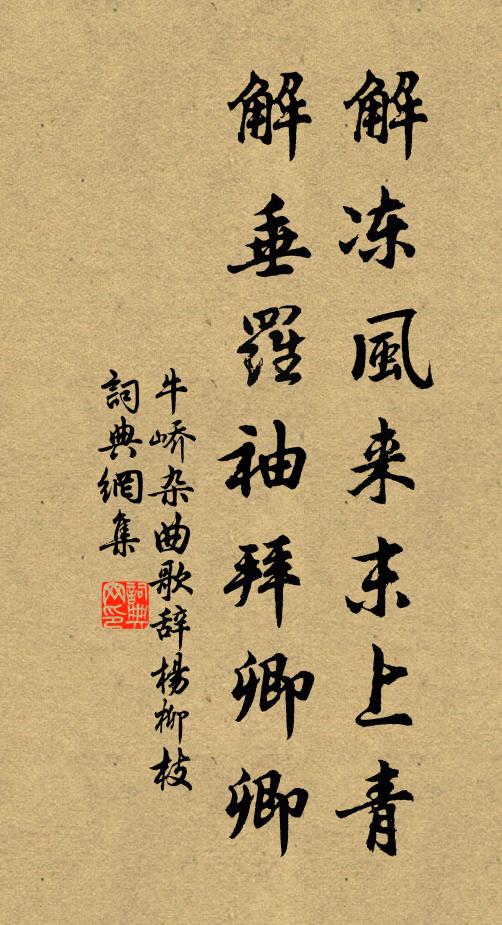 解冻風来末上青
解垂羅袖拜卿卿
牛峤杂曲歌辞楊柳枝
詞典網集
詞典网印